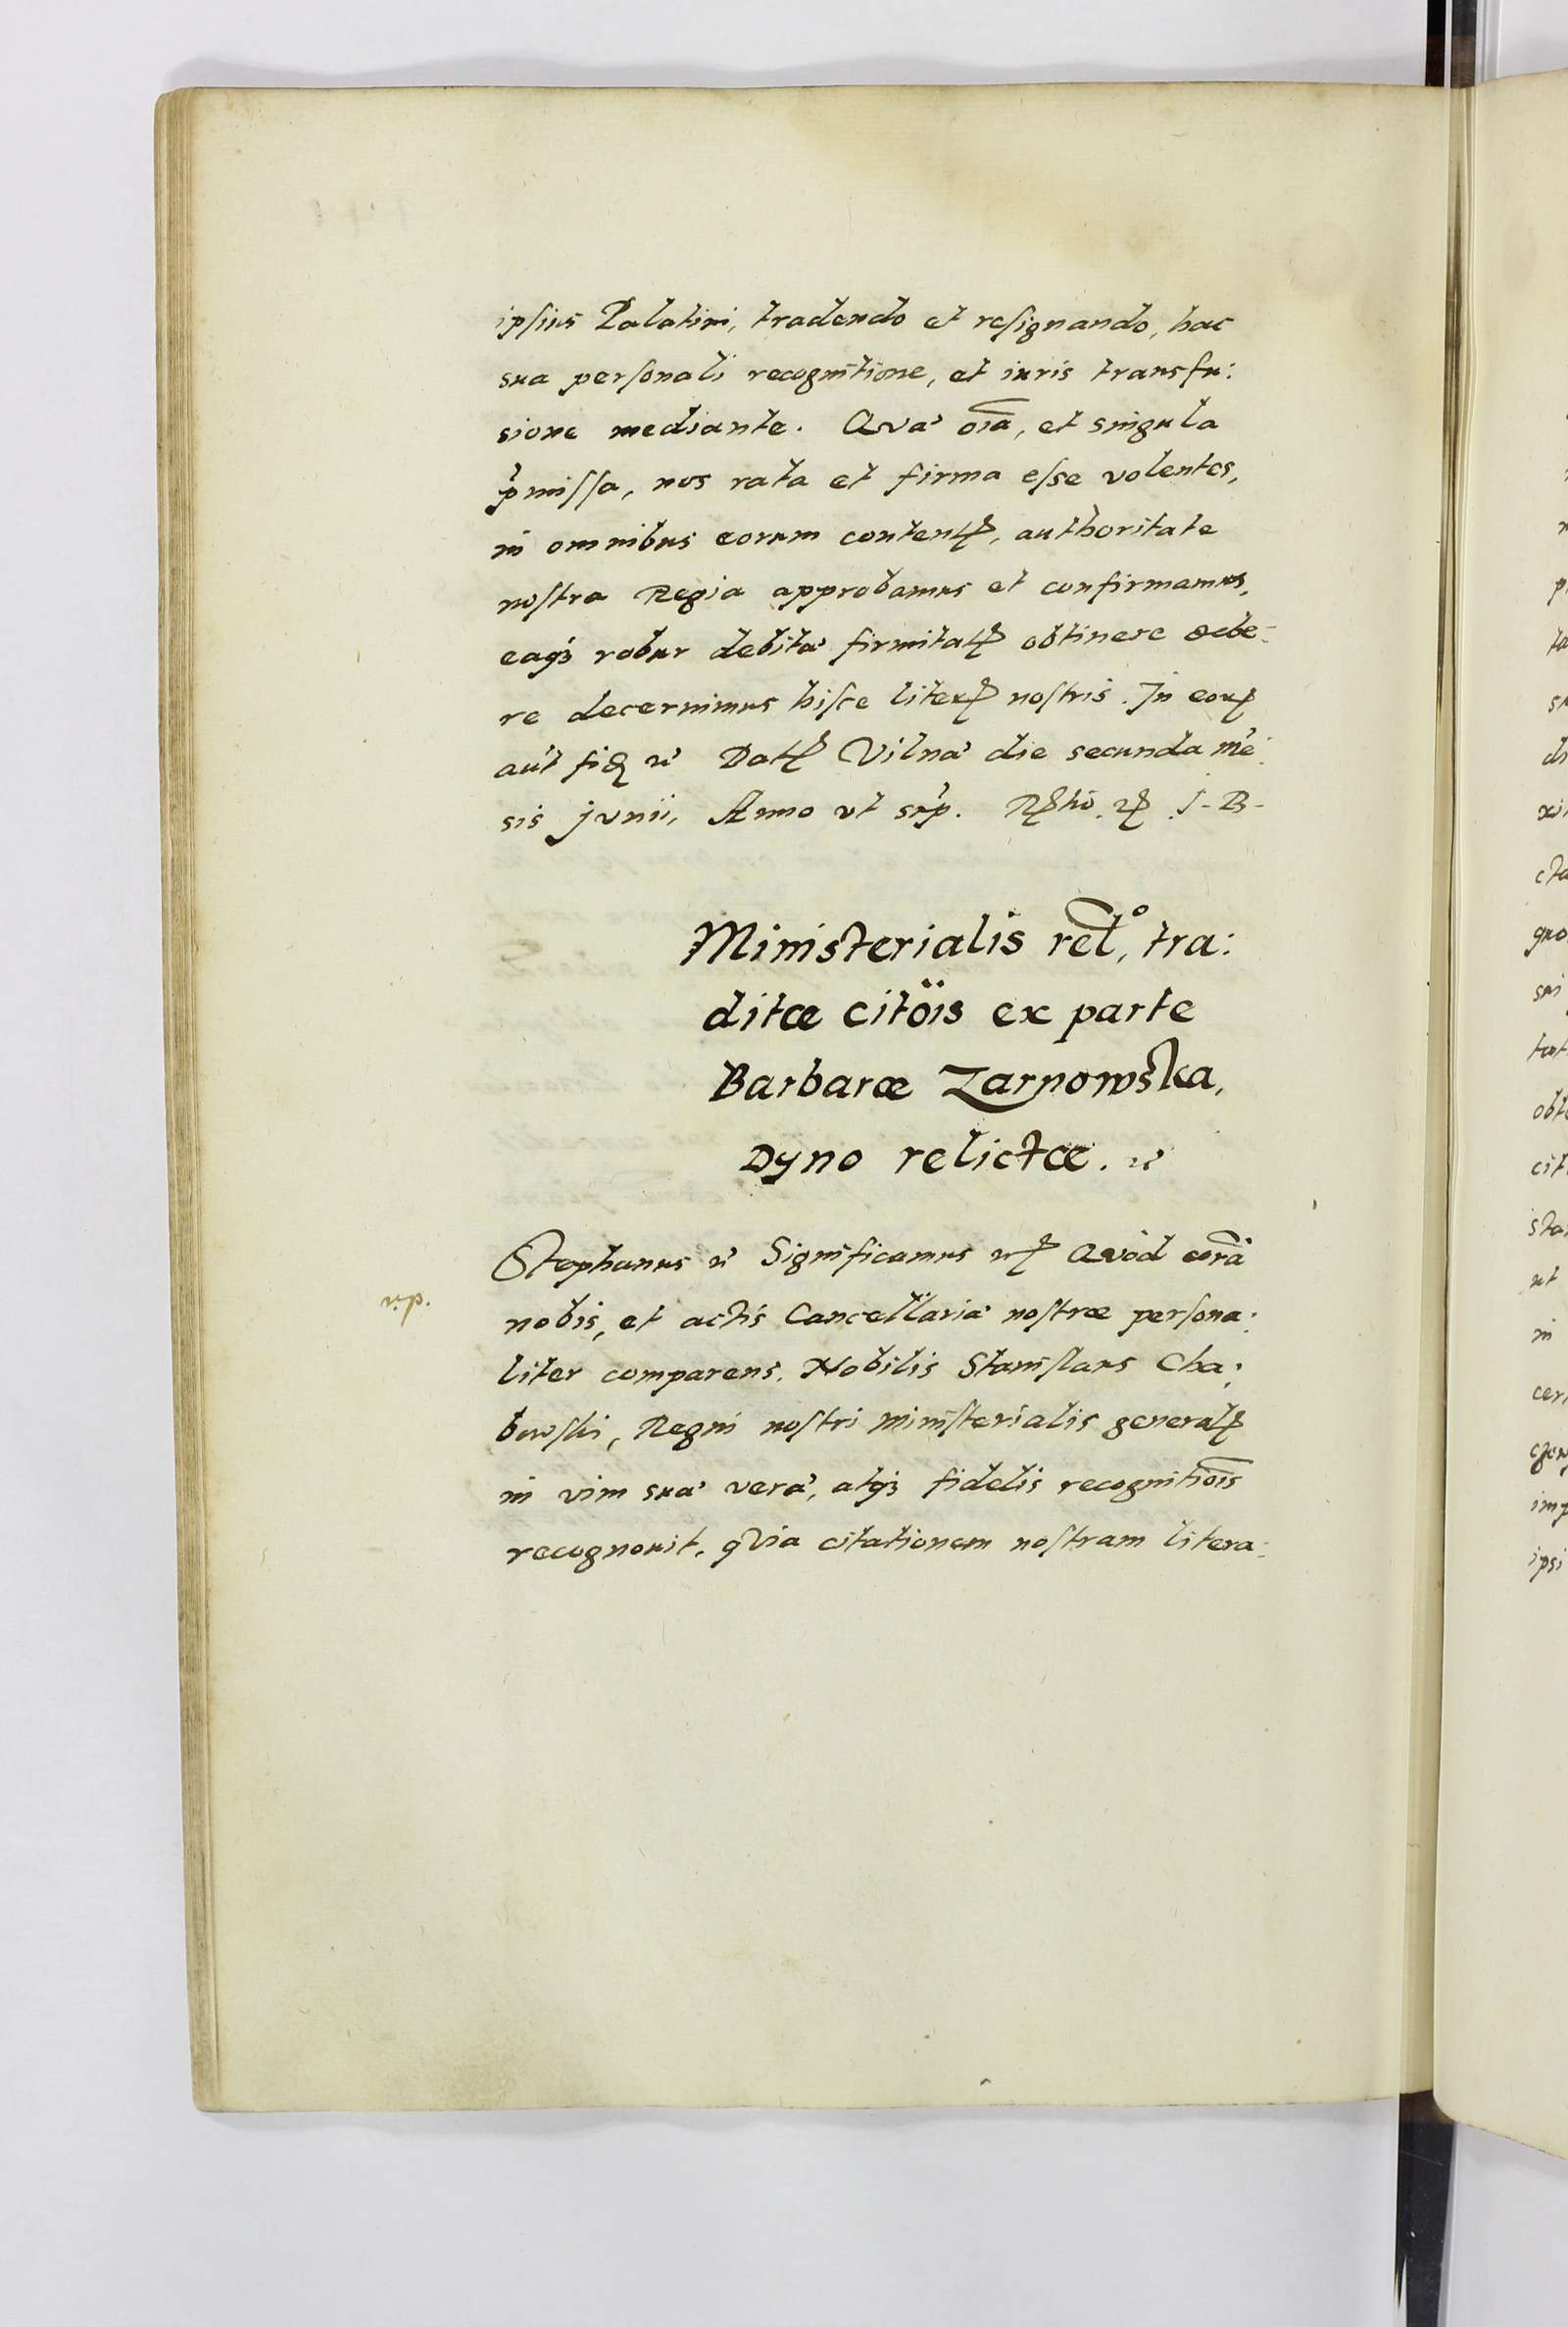 ipsius Palatini, tradendo et resignando, hac
sua personali recognitione, et iuris transfu:
sione mediante. Qvæ oĩa, et singula
p̃missa, nos rata et firma esse volentes,
in omnibus eorum contenꝭ, authoritate
nostra Regia approbamus et confirmamus,
eaqꝫ robur debitæ firmitaꝭ obtinere debe-
re decernimus hisce literꝭ nostris. In eorꝝ
aũt fiđ ꝛc Datꝭ Vilnæ die secunda mẽ:
sis junii, Anno vt sup̃. Rꝭtio. ꝛꝭ J-B-
Ministerialis rel̃o, tra:
ditæ citõis ex parte
Barbaræ Zarnowska,
Dyno relictæ. ꝛc
Stephanus ꝛc Significamus ꝛꝭ Qvòd corã
nobis, et actis Cancellariæ nostræ persona:
liter comparens. Nobilis Stanislaus Cha:
bowski, Regni nostri ministerialis generalꝭ
in vim suæ veræ, atqꝫ fidelis recognitiõis
recognouit, qvia citationem nostram litera: